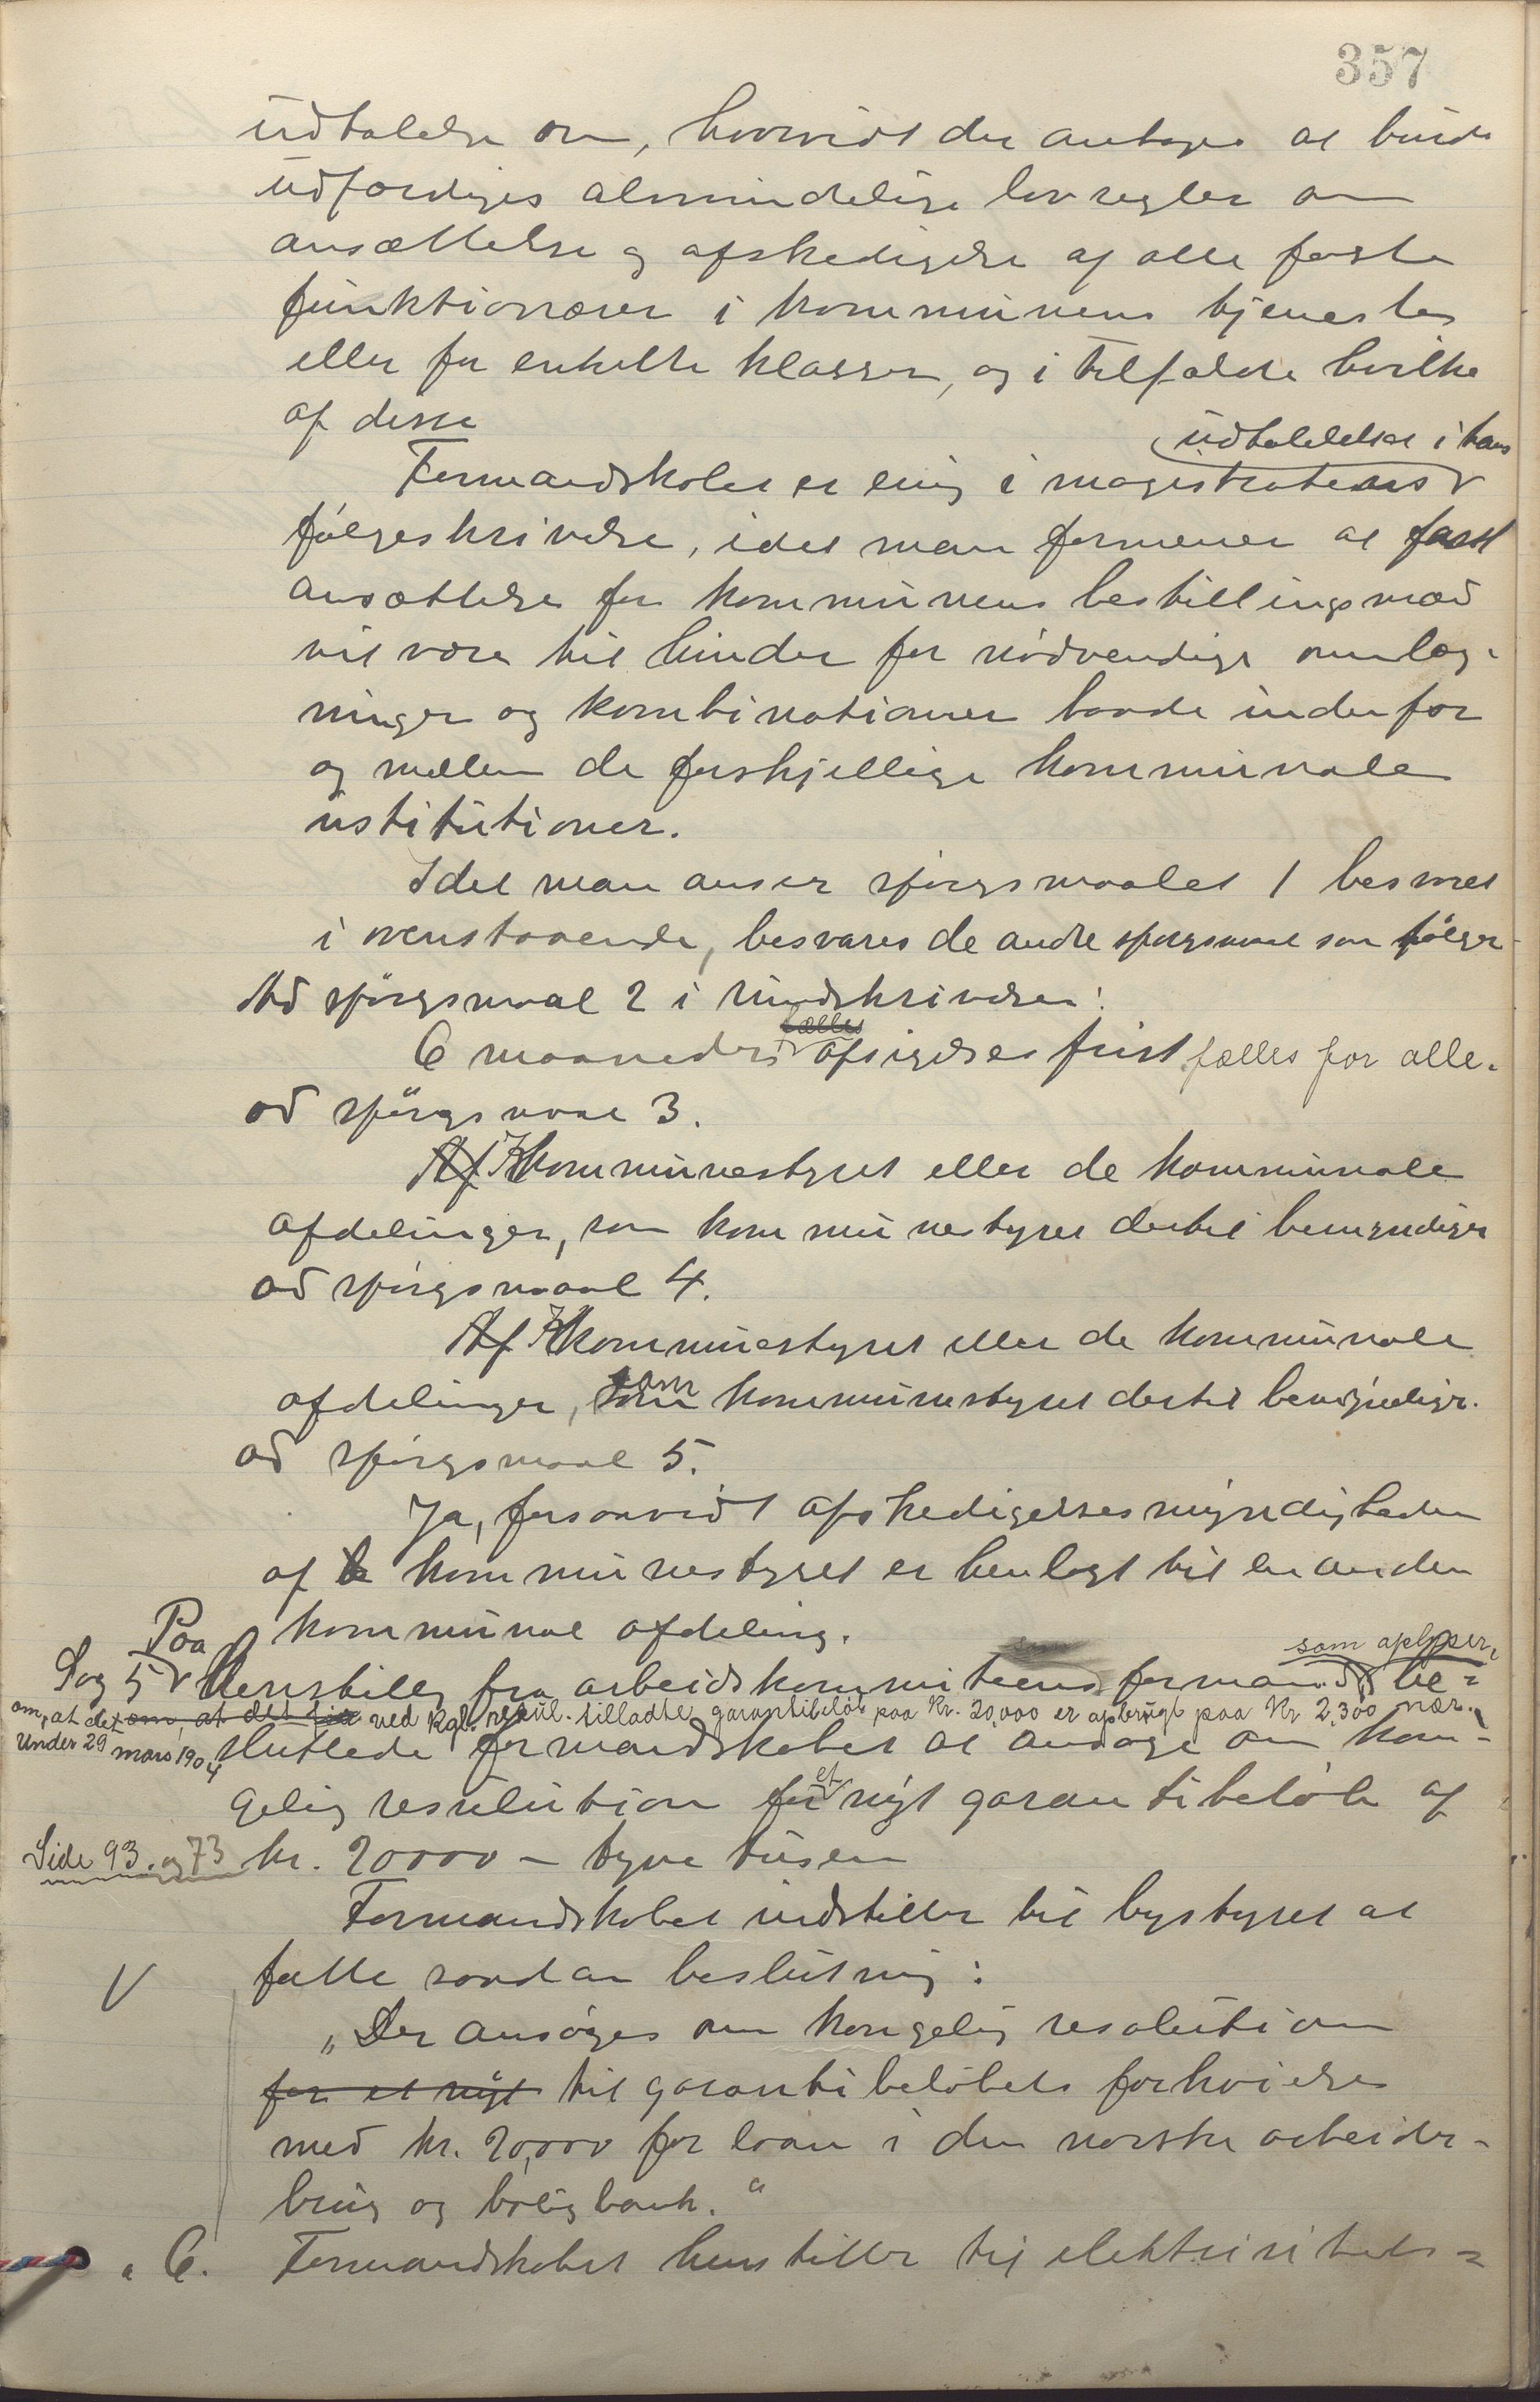 357
udtalelse om, hvorvidt der antages at burde
udfærdiges almindelige lovregler om
ansættelse og afskedigelse af alle faste
funktionærer i kommunens tjeneste
eller for enkelte klasser, og i tilfælde hvilke
af disse
udtalelser i hans
Formandskabet er enig i magistratens
følgeskrivelse, idet man formener at fast
ansættelse for kommunens bestillingsmæd
vil være til hinder for nødvendige omlæg-
ninger og kombinationer baade indenfor
og mellem de forskjellige kommunale
institutioner.
Idet man anser spørgsmaalet 1 besvaret
i ovenstaaende, besvares de andre spørgsmaal som følger
Ad spørgsmaal 2 i rundskrivelsen:
fælles
6 maaneders opsigelses frist fælles for alle.
ad spørgsmaal 3.
Af Kommunestyret eller de kommunale
afdelinger, som kommunestyret dertil bemyndiger
ad spørgsmaal 4.
Af Kommunestyret eller de kommunale
afdelinger, som kommunestyret dertil bemyndiger.
ad spørgsmaal 5.
Ja, forsaavidt afskedigelsesmyndigheden
af kommunestyret er henlagt til en anden
kommunal afdeling.
Paa
som oplyser,
Sag 5 Henstilling fra arbeidskommiteens formand be-
om, at det om, at det ved kgl. resul. tilladte garantibeløb paa Kr. 20,000 er opbrugt paa Kr 2,300 nær.
under 29 mars 1904
sluttede formandskabet at ansøge om kon-
gelig resulution for et nyt garantibeløb af
Side 93. og 73
kr. 20000 – tyve tusen
Formandskabet indstiller til bystyret at
fatte saadan beslutning:
V
„Der ansøges om kongelig resolution
for et nyt til garantibeløbets forhøielse
med kr. 20,000 for laan i den norske arbeider-
brug og boligbank."
" 6. Formandskabet henstiller til elektricitets-